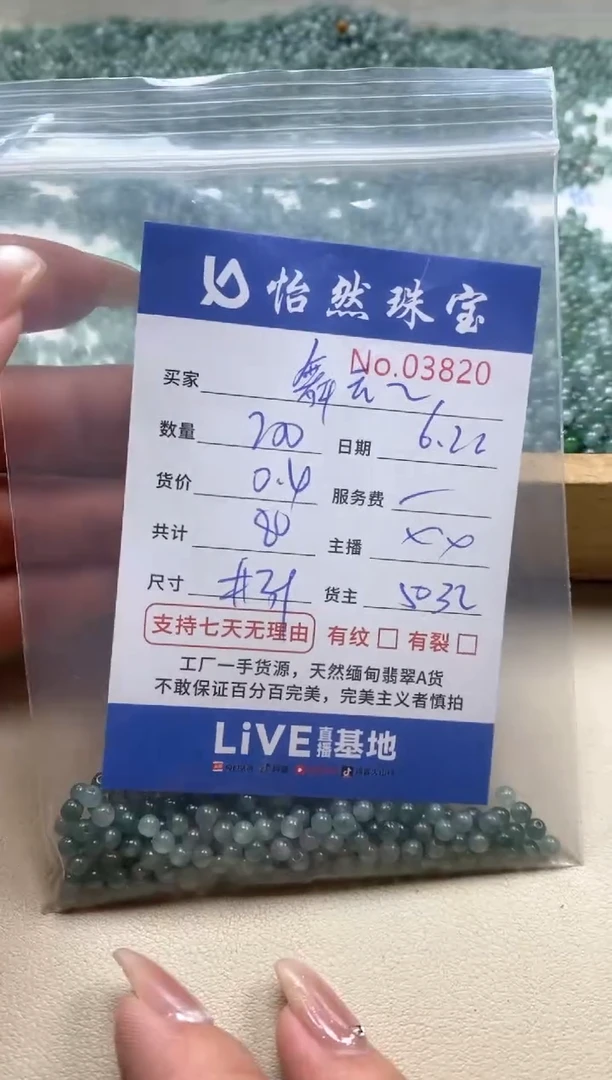 怡然珠宝
No.03820
买家
数量 200 日期 6.22
货价 0.4 服务费
共计 80 主播 xx
尺寸 货主 5032
支持七天无理由 有纹 有裂
工厂一手货源，天然缅甸翡翠A货
不敢保证百分百完美，完美主义者慎拍
LiVE直播基地